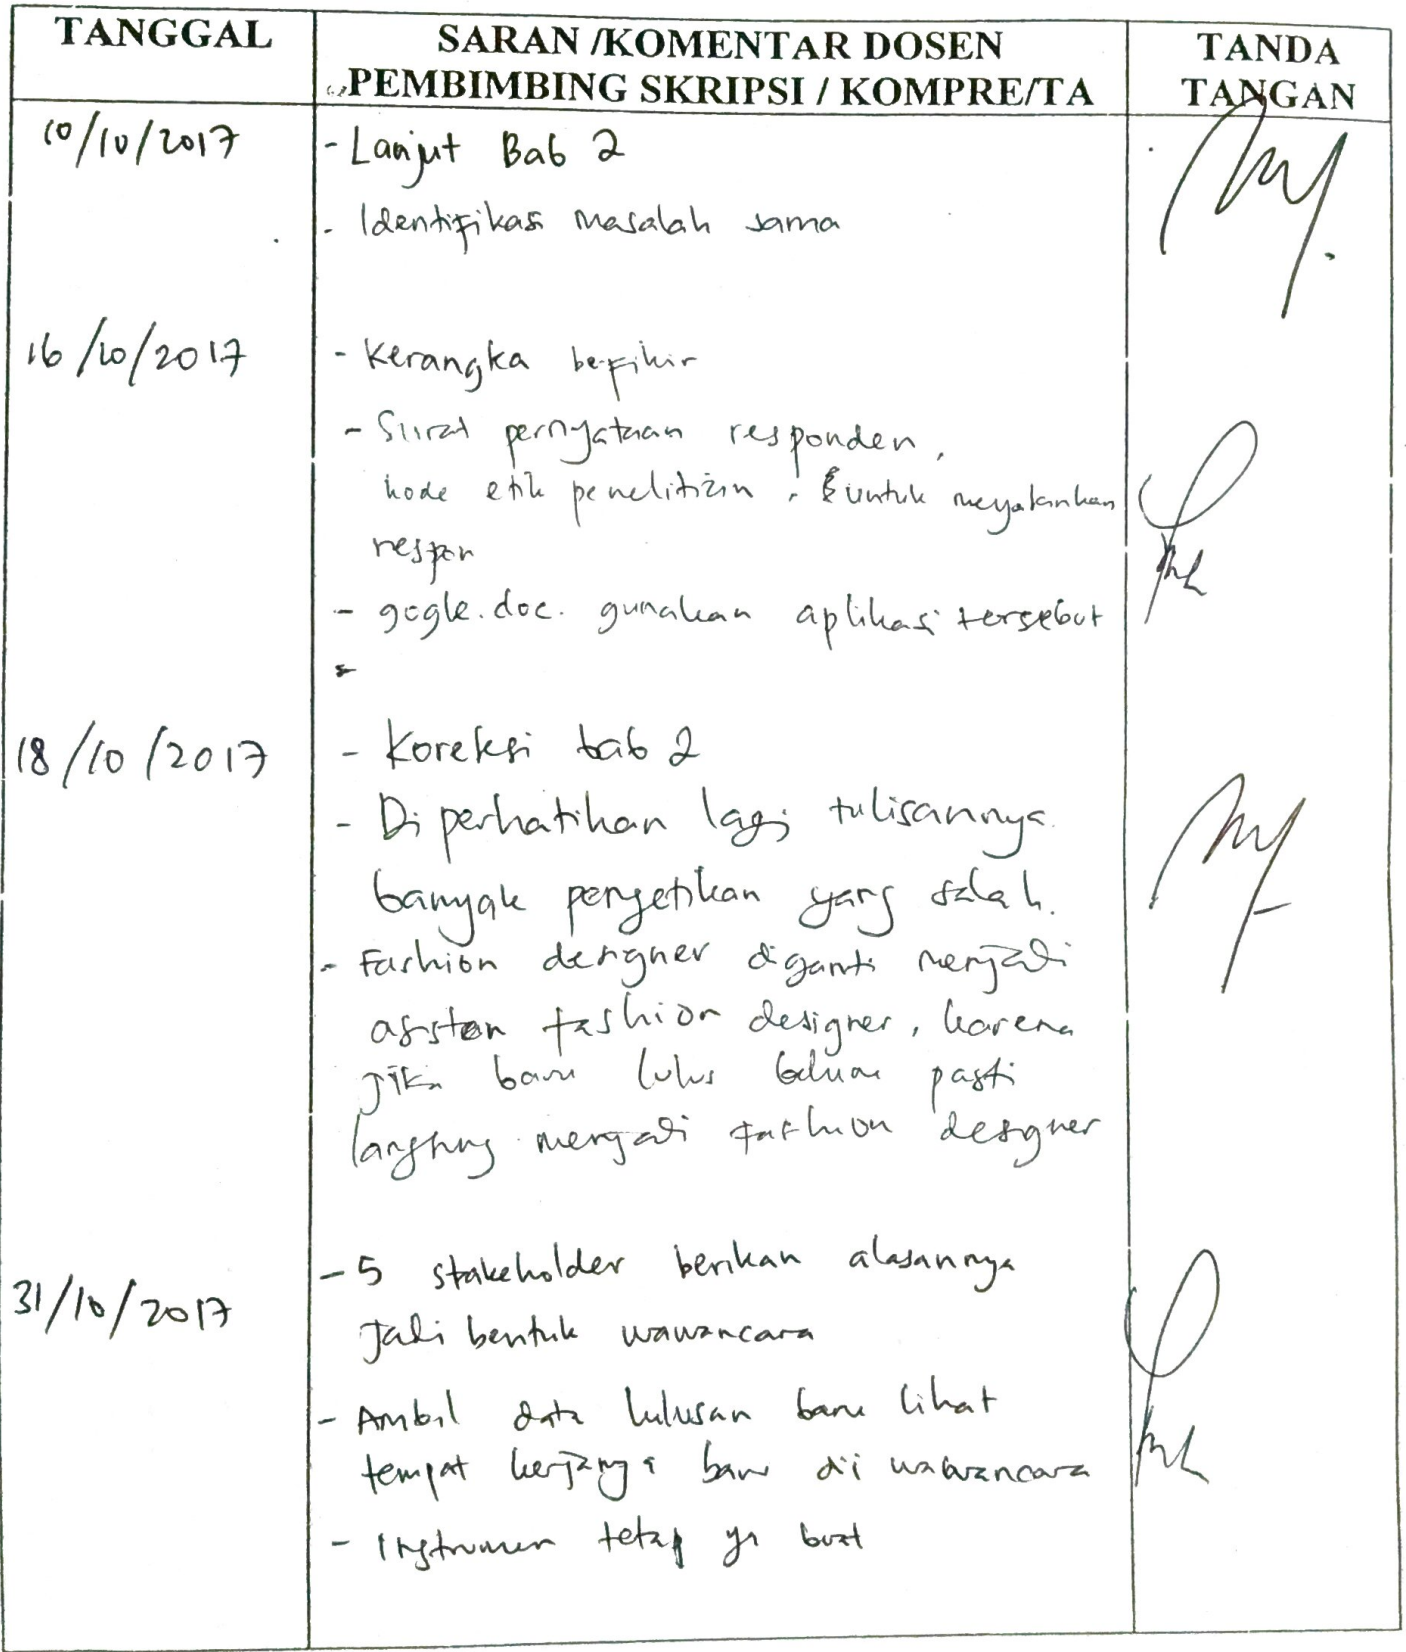 TANGGAL
SARAN /KOMENTAR DOSEN
PEMBIMBING SKRIPSI / KOMPRE/TA
TANDA
TANGAN
10/10/2017
- Lanjut Bab 2
- Identifikasi masalah sama
16/10/2017
- Kerangka berfikir
- Surat pernyataan responden,
kode etik penelitian, untuk meyakinkan
respon
- gogle.doc. gunakan aplikasi tersebut
18/10/2017
- Koreksi bab 2
- Diperhatikan lagi tulisannya
banyak pengetikan yang salah.
- Fashion designer diganti menjadi
asisten fashion designer, karena
jika baru lulus belum pasti
langsung menjadi fashion designer
31/10/2017
- 5 stakeholder berikan alasannya
Jadi bentuk wawancara
- Ambil data lulusan baru lihat
tempat kerjanya baru di wawancara
- Instrumen tetap buat